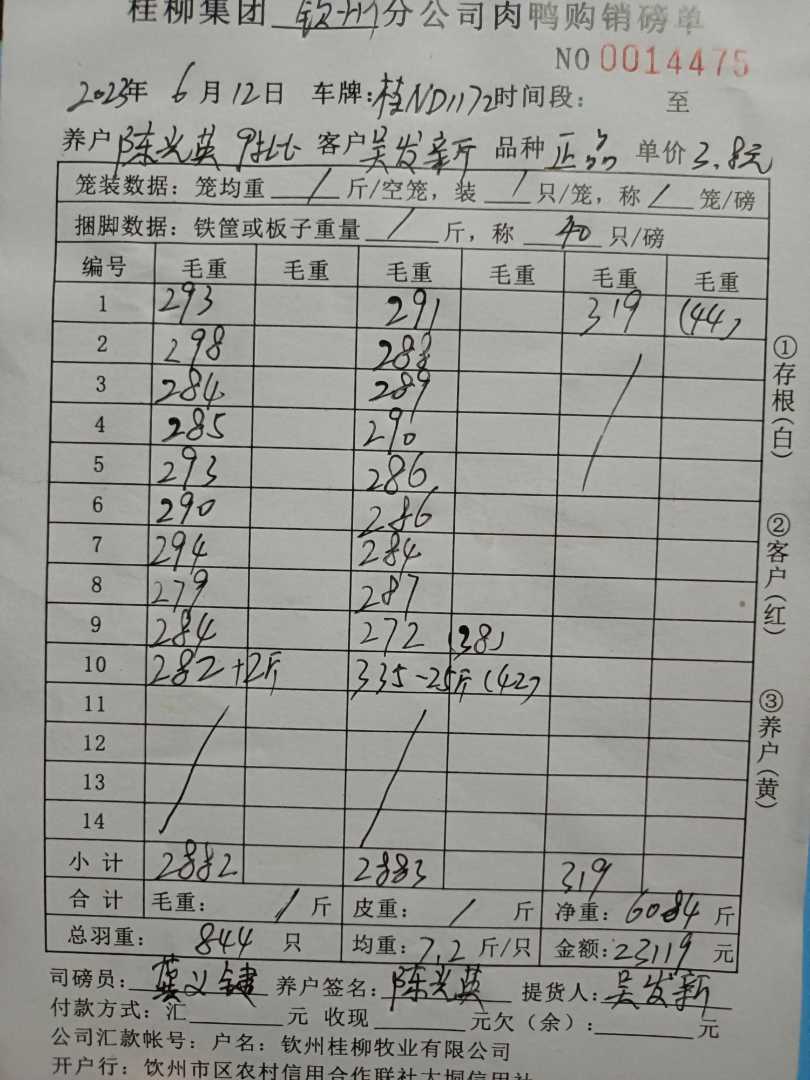 桂柳集团 钦州 分公司肉鸭购销磅单
NO 0014475
2023年 6月12日 车牌:桂ND1172 时间段: 至
养户 陈光英 9批 客户 吴发新 品种 正品 单价 3.8元
笼装数据:笼均重 / 斤/空笼,装 / 只/笼,称 / 笼/磅
捆脚数据:铁筐或板子重量 / 斤,称 40 只/磅
编号 毛重 毛重 毛重 毛重 毛重 毛重
1 293 291 319 (44)
2 298 288
3 284 289
4 285 290
5 293 286
6 290 286
7 294 284
8 279 287
9 284 272 (38)
10 282+2斤 335-25斤 (42)
11
12
13
14
小计 2882 2883 319
合计 毛重: / 斤 皮重: / 斤 净重: 6084 斤
总羽重: 844 只 均重: 7.2 斤/只 金额: 23119 元
司磅员: 龚义键 养户签名: 陈光英 提货人: 吴发新
付款方式:汇 元 收现 元欠(余): 元
公司汇款帐号:户名:钦州桂柳牧业有限公司
开户行:钦州市区农村信用合作联社大垌信用社
①存根(白)
②客户(红)
③养户(黄)